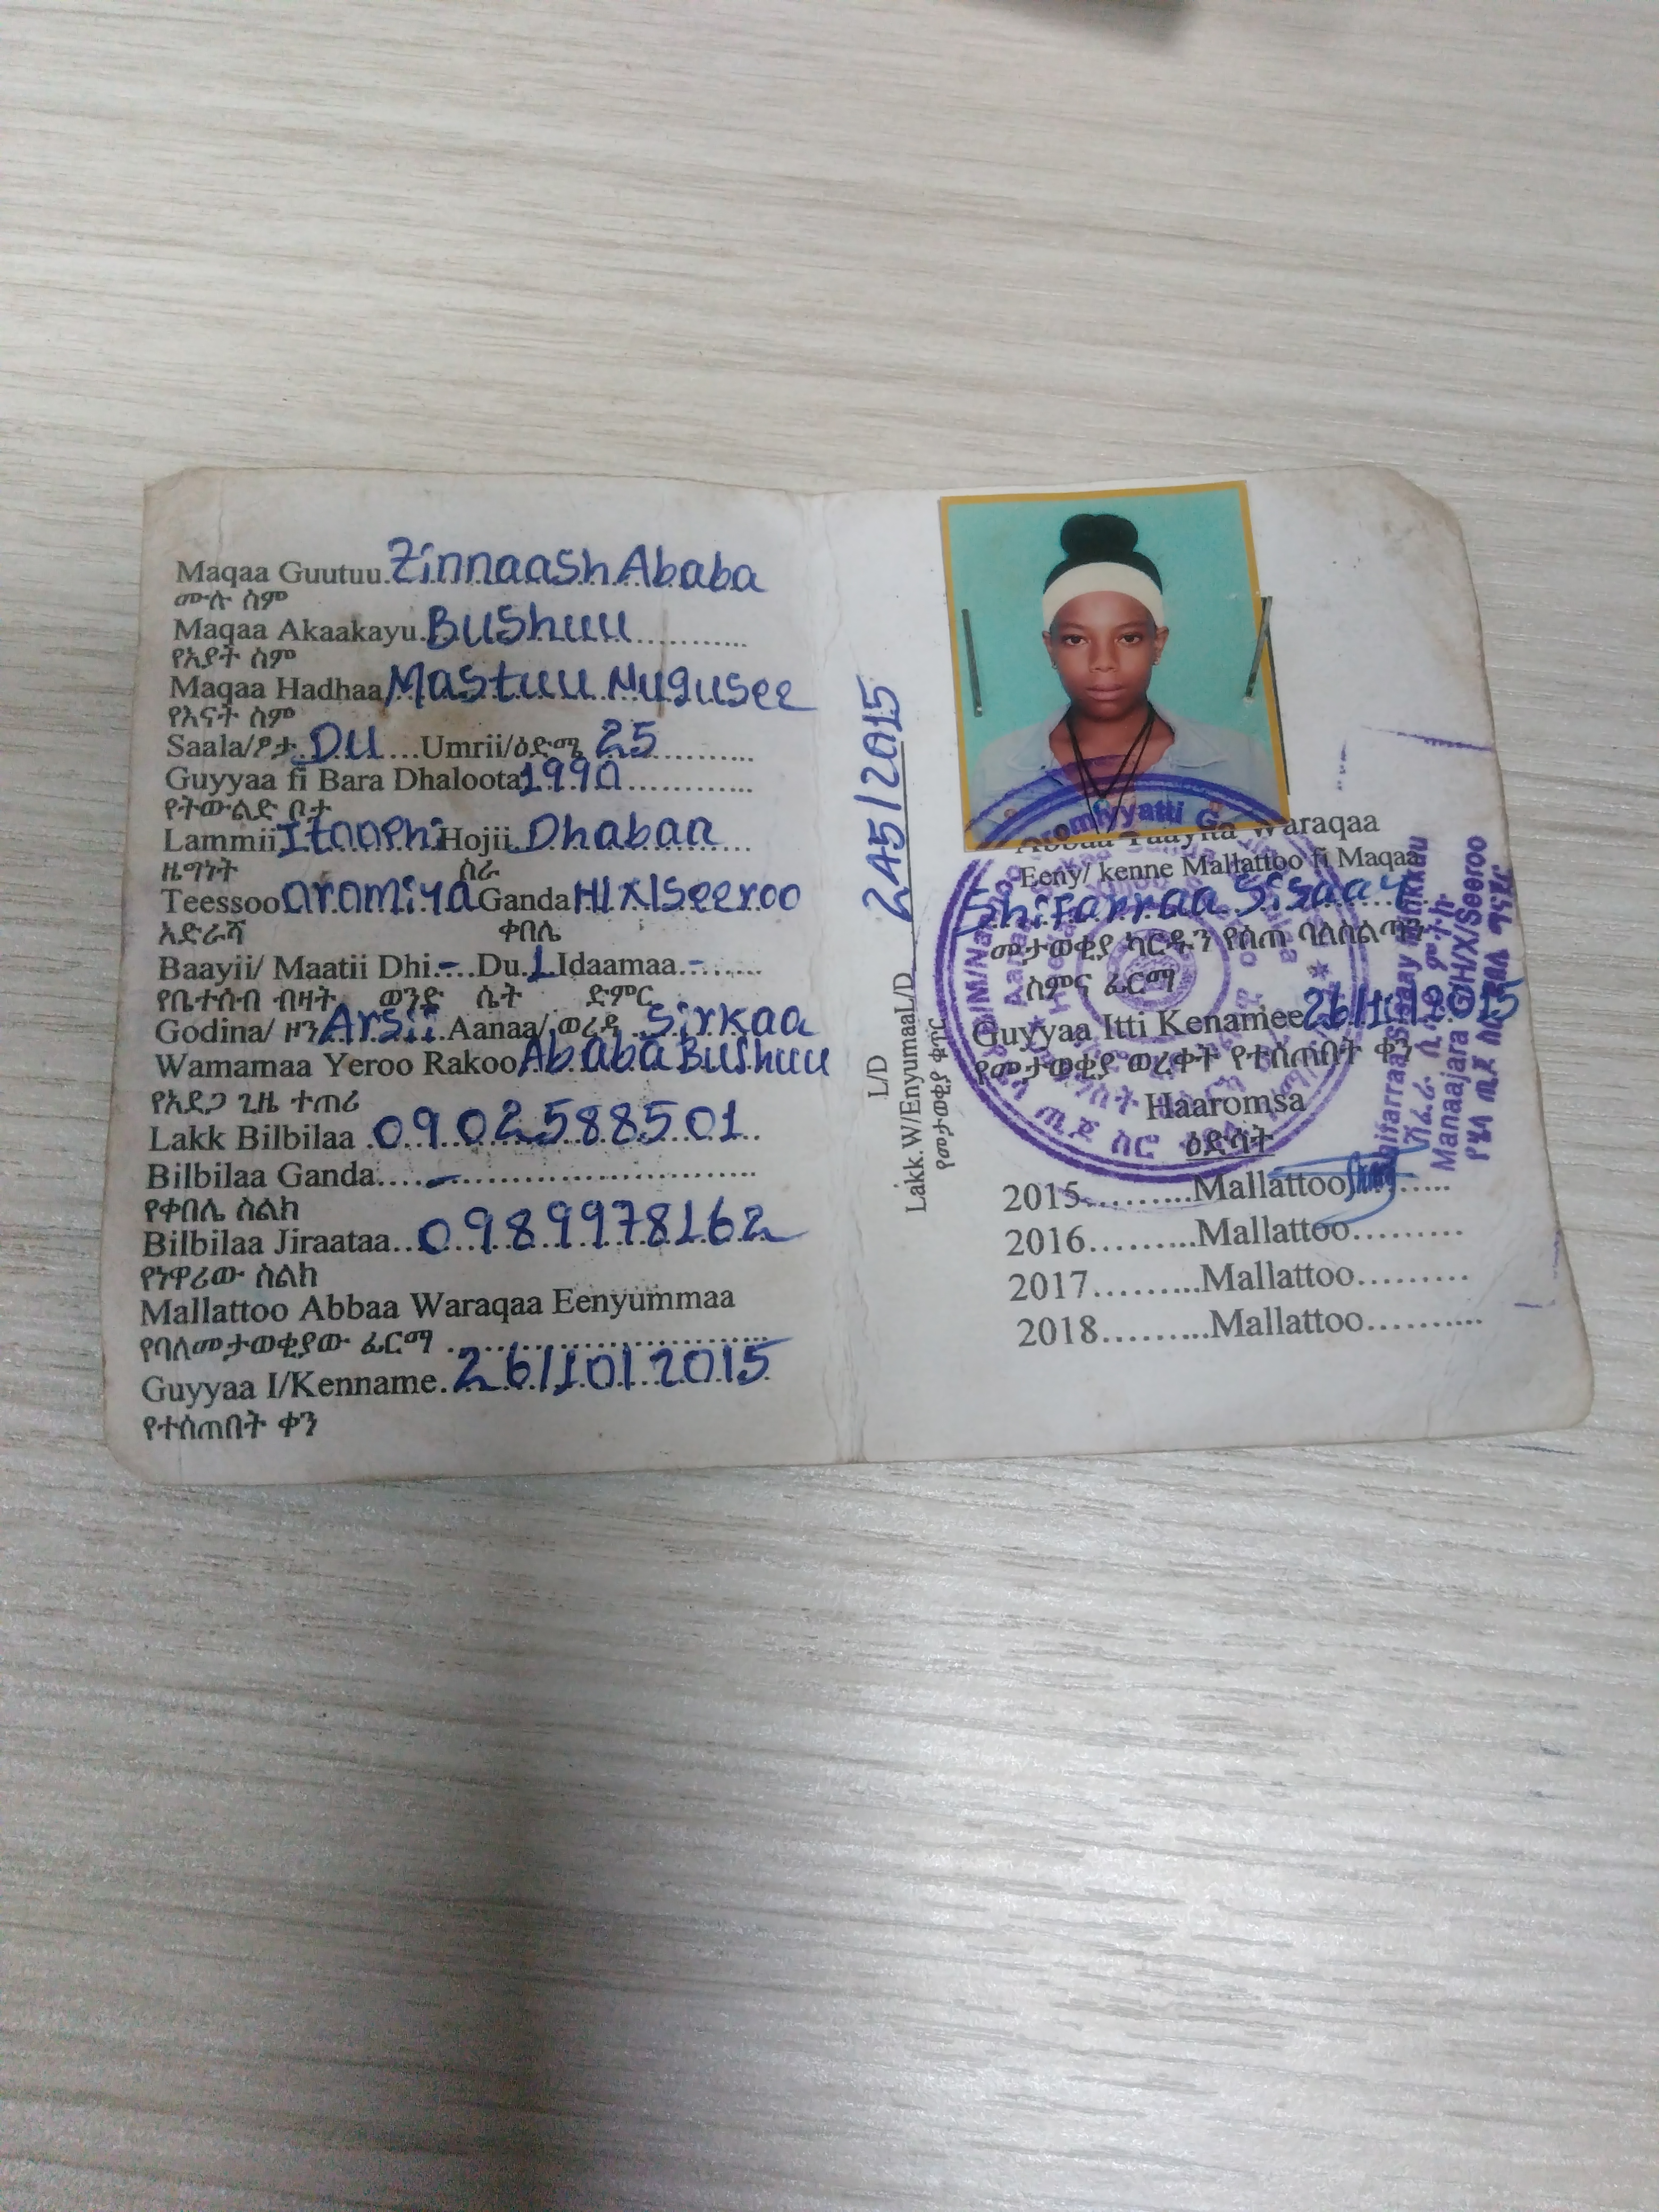 Maqaa Guutuu Zinnaash Ababa
ሙሉ ስም
Maqaa Akaakayu. Bushuu
የአያት ስም
Maqaa Hadhaa Mastuu Nugusee
የእናት ስም
Saala/ፆታ DU Umrii/ዕድሜ 25
Guyyaa fi Bara Dhaloota 1990
የትውልድ ቦታ
Lammii Itoophi Hojii Dhabaa
ዜግነት ስራ
Teessoo Oromiya Ganda H/X/Seeroo
አድራሻ ቀበሌ
Baayii/ Maatii Dhi. - Du. 1 Idaamaa. -
የቤተሰብ ብዛት ወንድ ሴት ድምር
Godina/ ዞን Arsii Aanaa/ ወረዳ Sirkaa
Wamamaa Yeroo Rakoo Ababa Bushuu
የአደጋ ጊዜ ተጠሪ
Lakk Bilbilaa 0902588501
Bilbilaa Ganda -
የቀበሌ ስልክ
Bilbilaa Jiraataa 0989978162
የነዋሪው ስልክ
Mallattoo Abbaa Waraqaa Eenyummaa
የባለመታወቂያው ፊርማ
Guyyaa I/Kenname. 26/10/2015
የተሰጠበት ቀን
L/D 245/2015
Lakk.W/EnyumaaL/D
የመታወቂያ ቁጥር
Waraqaa
Eeny/ kenne Mallattoo fi Maqaa
Shifarraa Sisaay
መታወቂያ ካርዱን የሰጠ ባለስልጣን
ስምና ፊርማ
Guyyaa Itti Kenamee 26/10/2015
የመታወቂያ ወረቀት የተሰጠበት ቀን
Haaromsa
ዕድሳት
2015 Mallattoo
2016 Mallattoo
2017 Mallattoo
2018 Mallattoo
Manaajara G/H/X/Seeroo